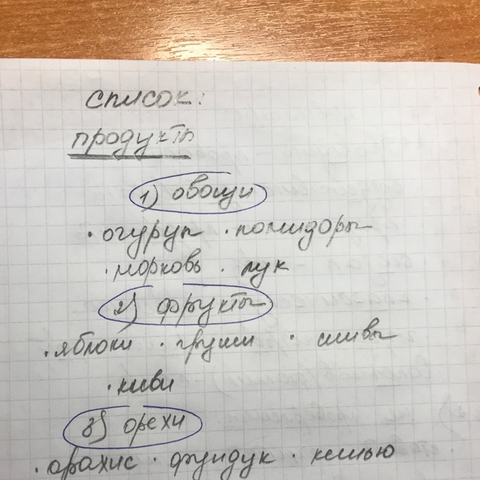 список:
продукты
1) овощи
· огурцы · помидоры
· морковь · лук
2) фрукты
· яблоки · груши · сливы
· киви
3) орехи
· арахис · фундук · кешью